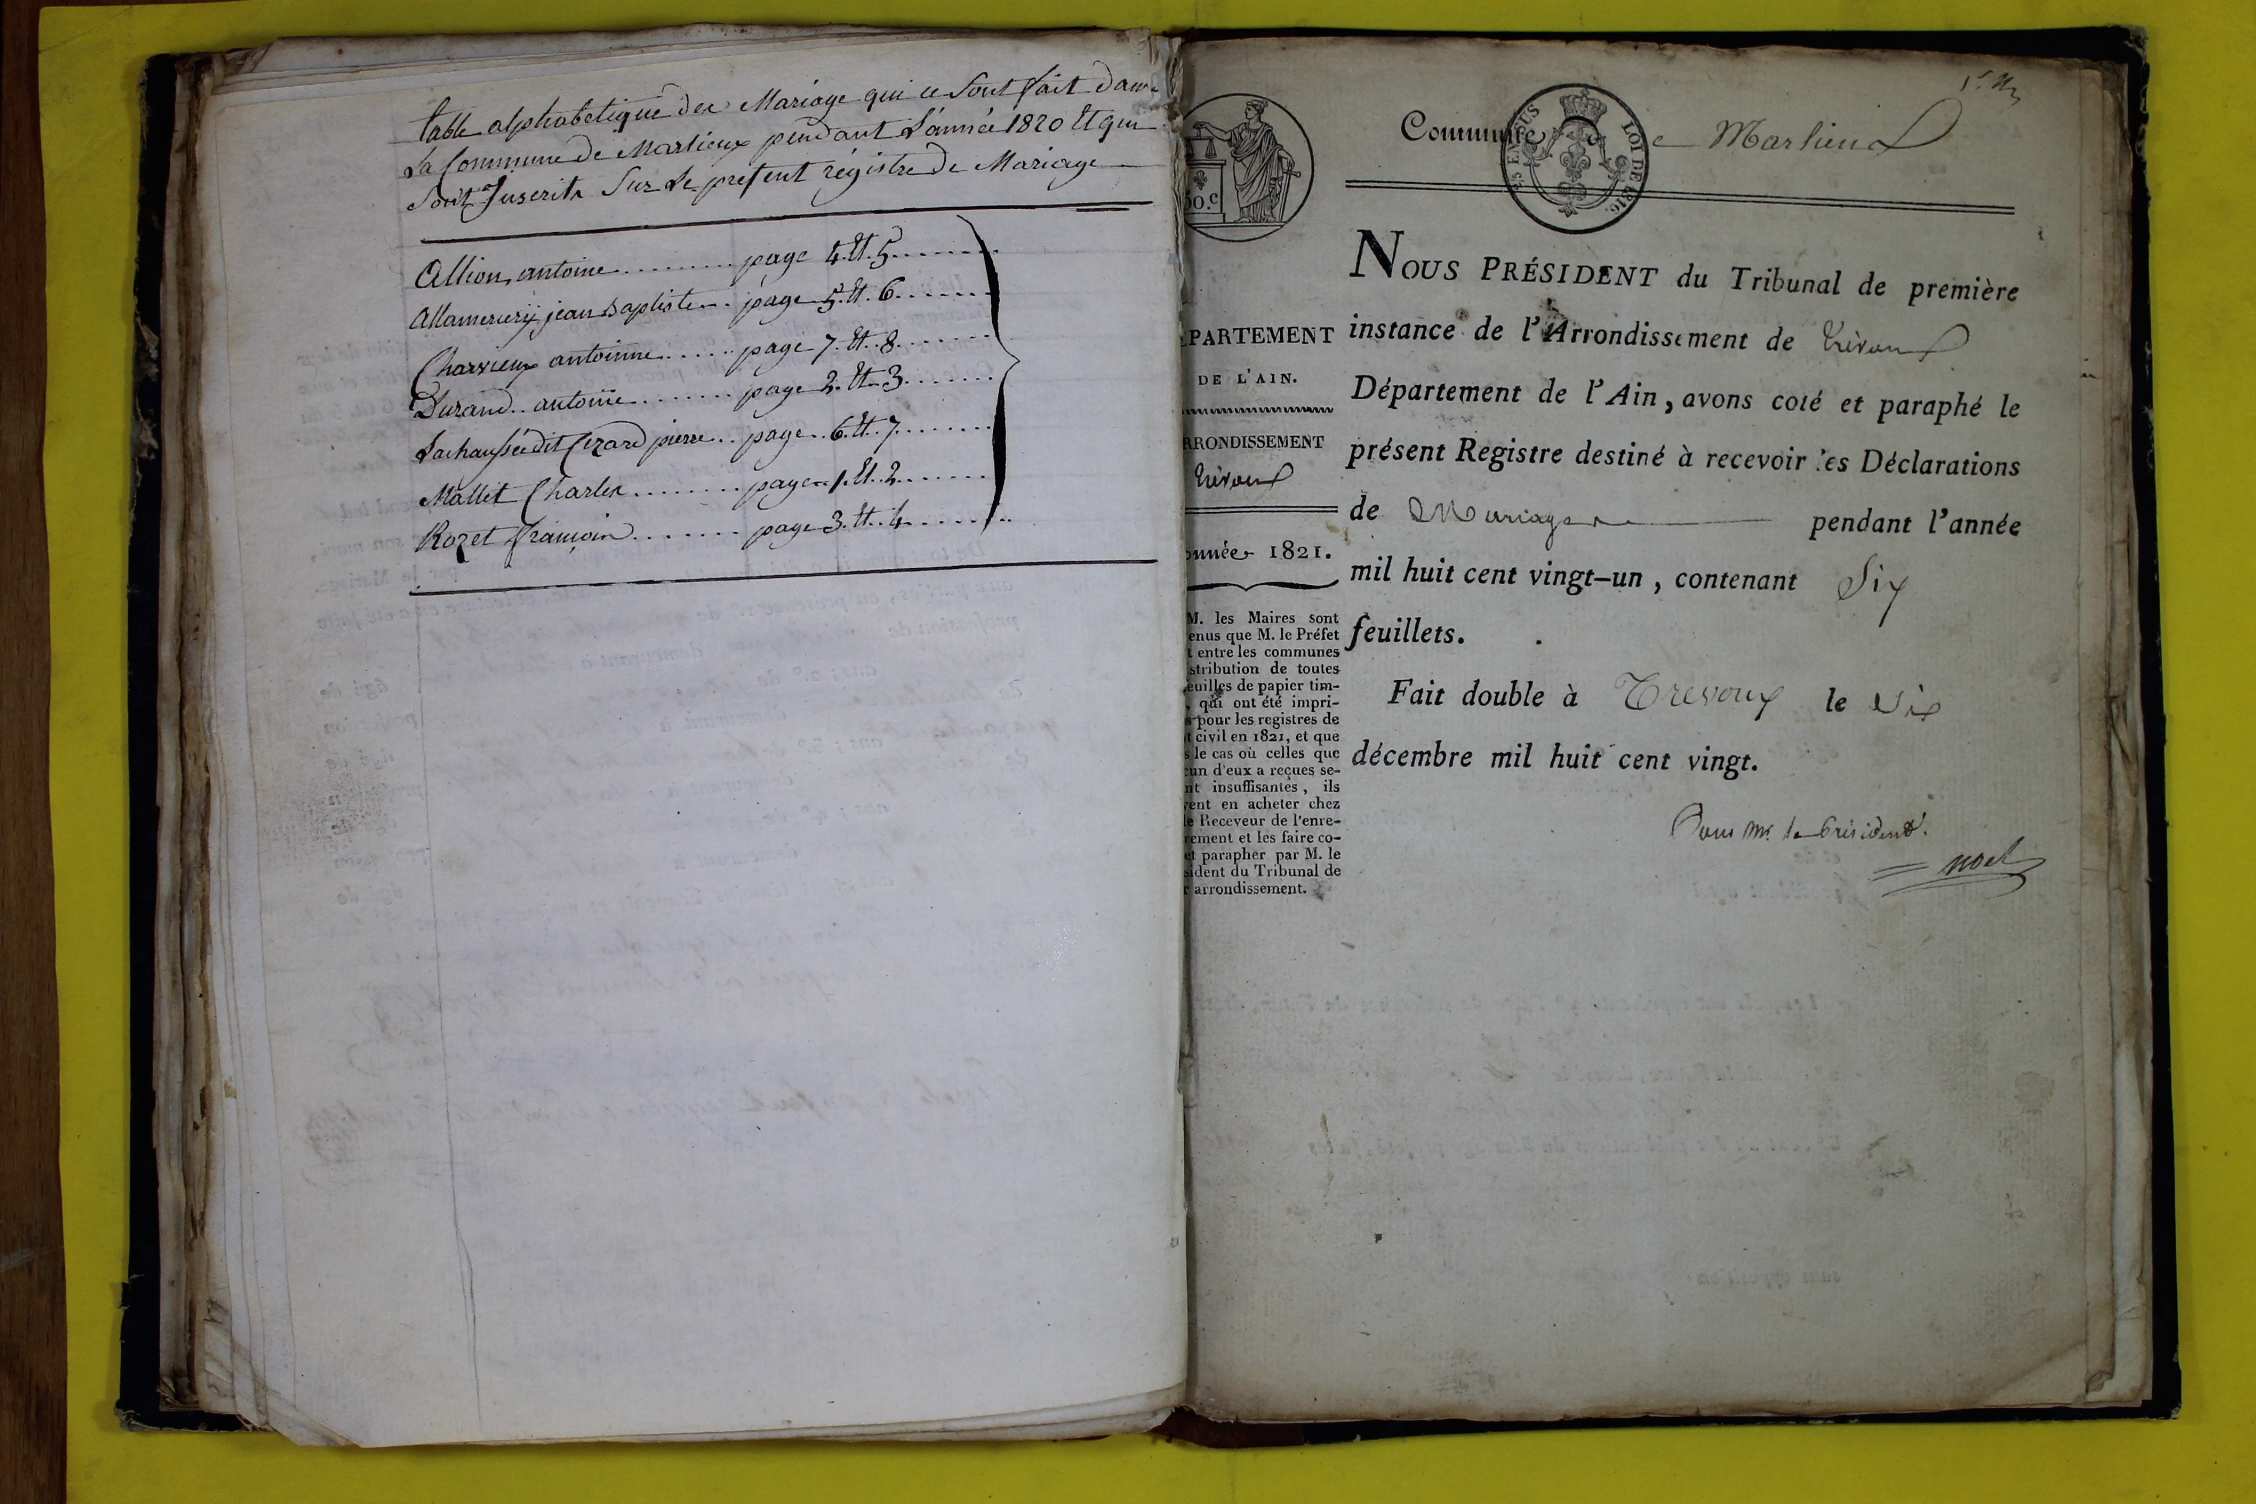 table alphabetique des Mariage qui ce Sont fait dans
La Commune de Marlieux pendant L'année 1820 Et qui
Sont Inscrits Sur Le present régistre de Mariage
Allion antoine ........ page 4. Et. 5 ........
Allamercery jean Baptiste ... page 5. Et. 6 ........
Charvieux antoinne ...... page 7. Et. 8 ........
Durand .. antoine ........ page 2. Et. 3 ........
Lachaussée dit Cizard pierre .. page .. 6. Et. 7 ........
Mallet Charles ........ page .. 1. Et. 2 ........
Rozet françois ........ page 3. Et. 4 ........
50.c
ENSUS
LOI DE 1816.
Commune de Marlieux
PARTEMENT
DE L'AIN.
RRONDISSEMENT
Trévoux
année 1821.
M. les Maires sont
enus que M. le Préfet
t entre les communes
stribution de toutes
euilles de papier tim-
, qui ont été impri-
s pour les registres de
t civil en 1821, et que
s le cas où celles que
cun d'eux a reçues se-
nt insuffisantes, ils
vent en acheter chez
le Receveur de l'enre-
rement et les faire co-
et parapher par M. le
sident du Tribunal de
r arrondissement.
NOUS PRÉSIDENT du Tribunal de première
instance de l'Arrondissement de Trévoux
Département de l'Ain, avons coté et paraphé le
présent Registre destiné à recevoir les Déclarations
de Mariages pendant l'année
mil huit cent vingt-un, contenant Six
feuillets.
Fait double à Trevoux le Six
décembre mil huit cent vingt.
Pour Mr. le Président.
noel